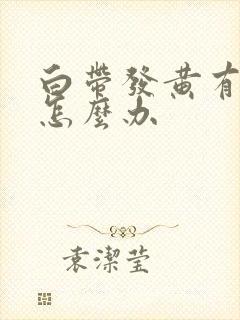 白帶發黃有
怎麼办
袁潔莹